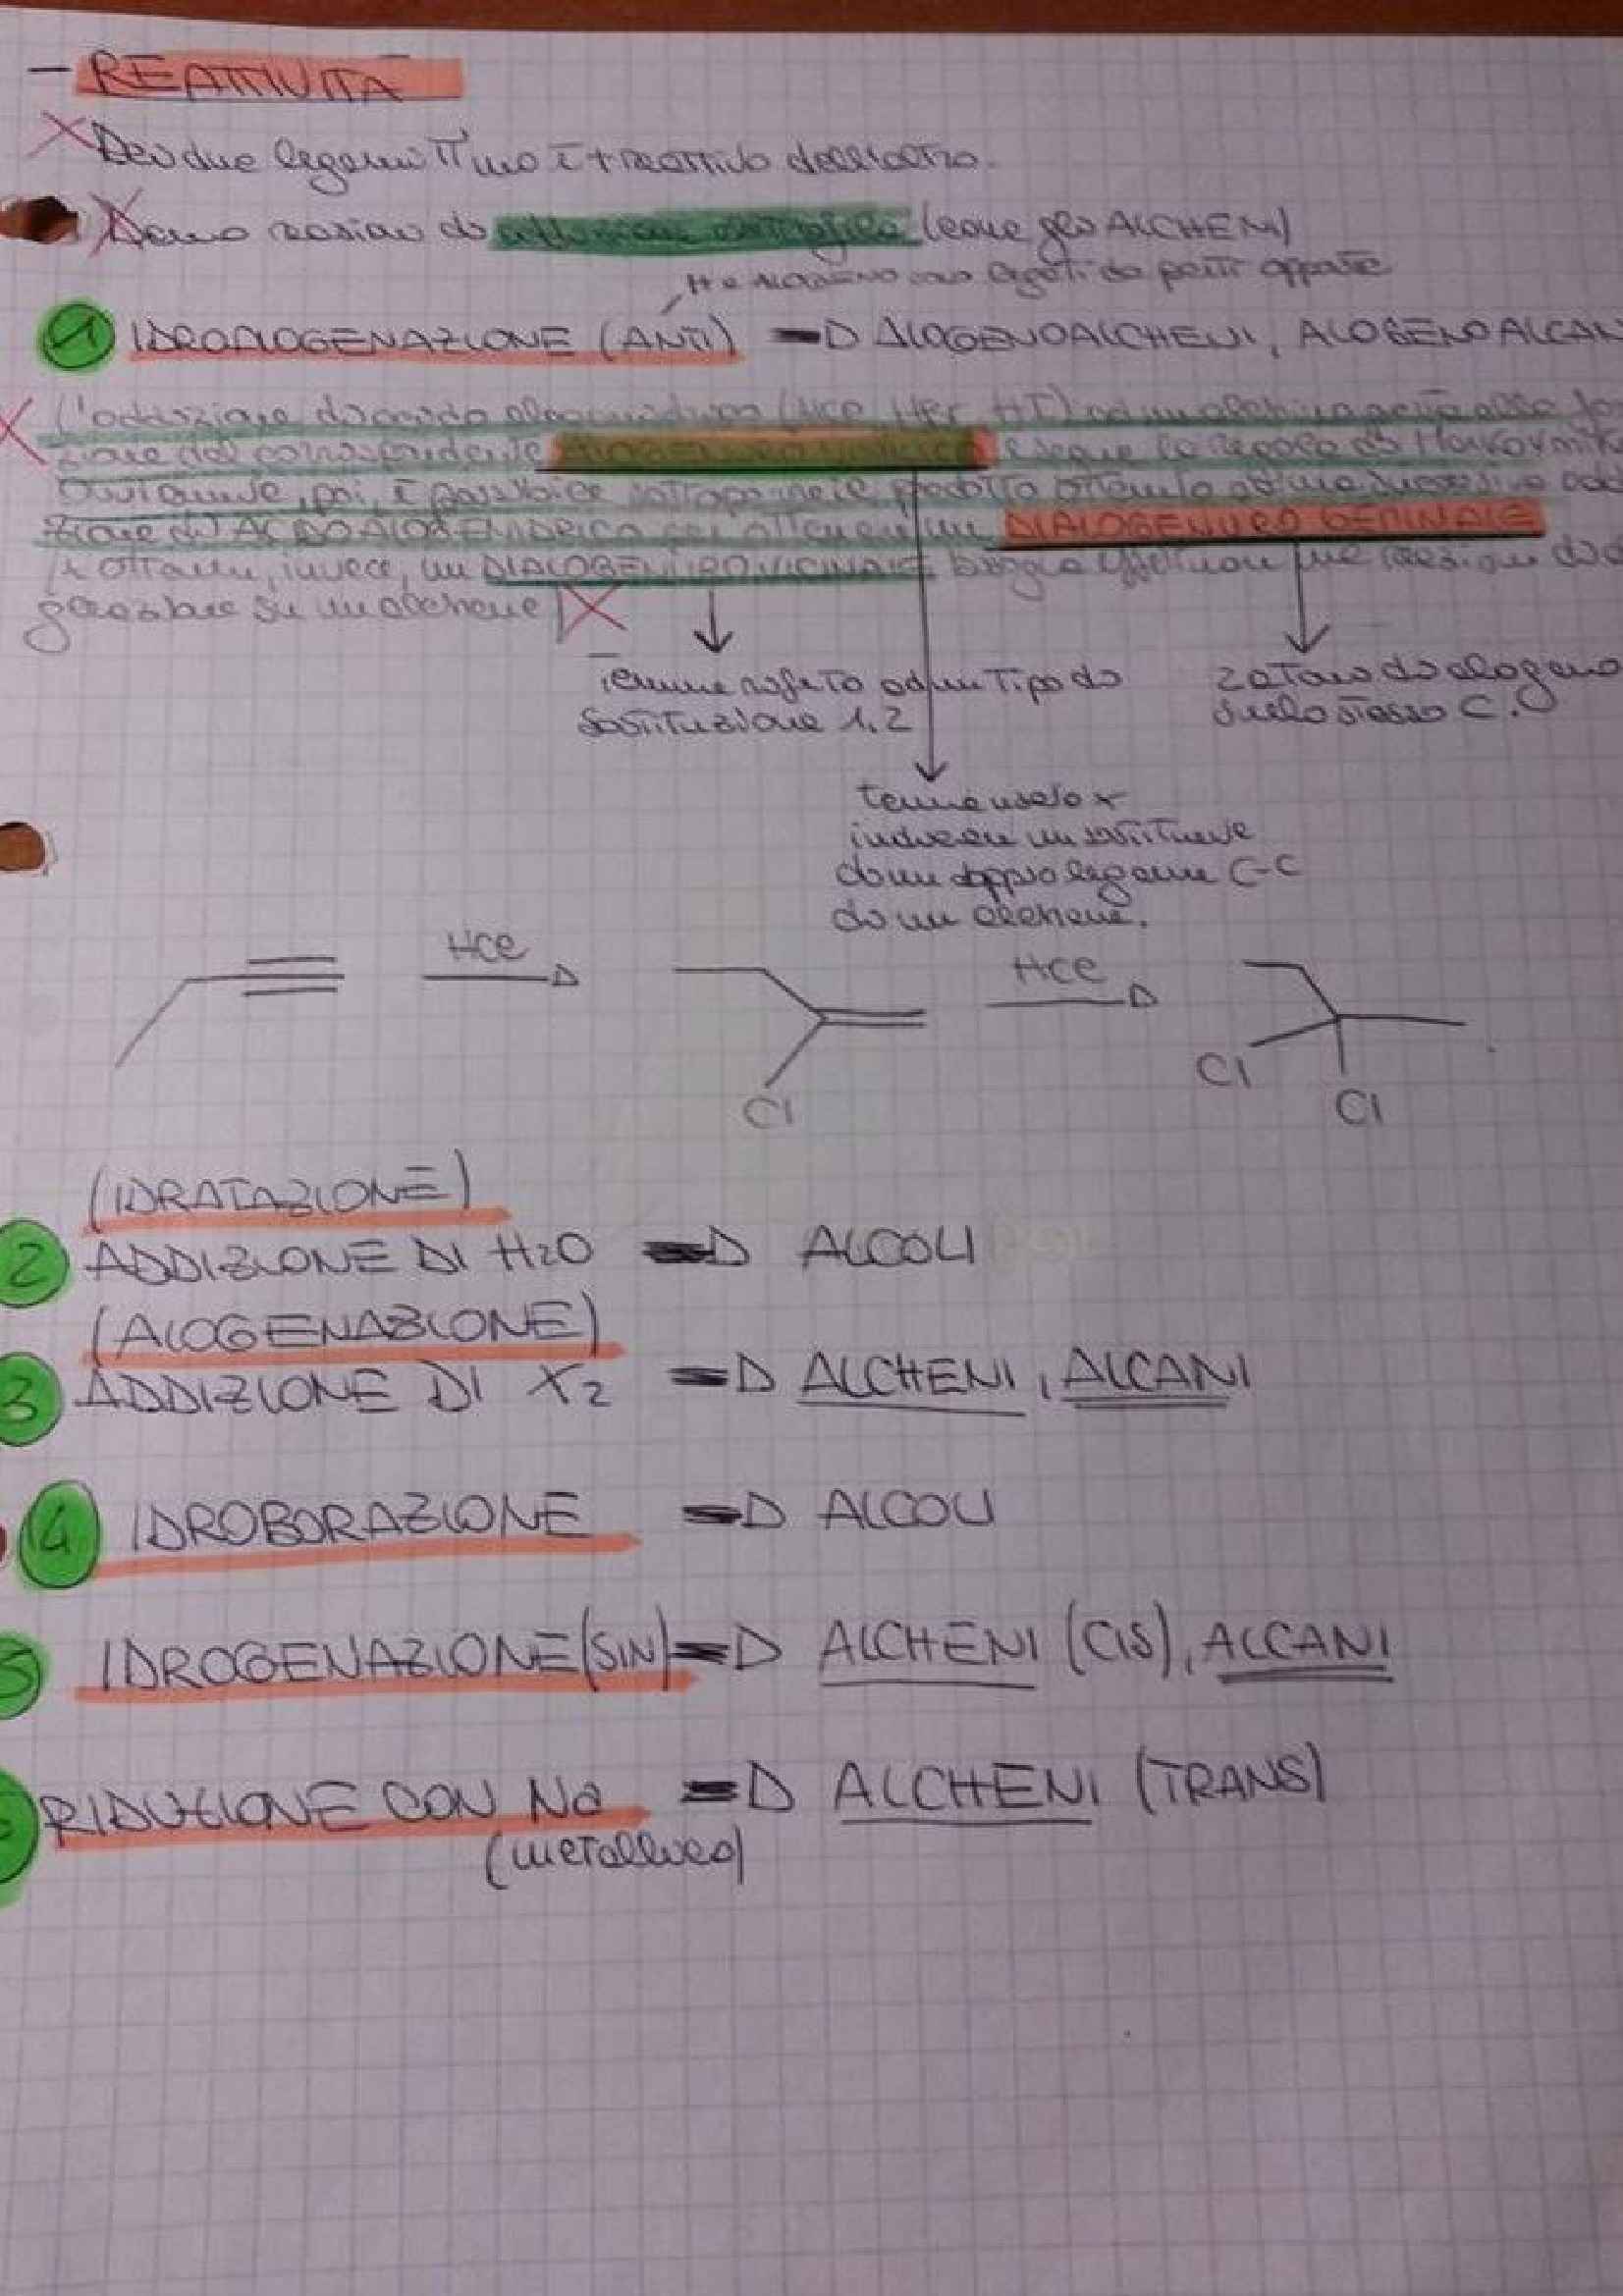 - REATTIVITÀ
Dei due legami π uno è + reattivo dell'altro.
Danno reazioni di addizione elettrofila (come gli ALCHENI)
H e ALOGENO sono legati da parti opposte
1 IDROALOGENAZIONE (ANTI) => ALOGENOALCHENI, ALOGENOALCAN
L'addizione di acido alogenidrico (HCl, HBr, HI) ad un alchino porta alla for
zione del corrispondente ALOGENURO VINILICO e segue la regola di Markovnik
Ovviamente, poi, è possibile sottoporre il prodotto ottenuto ad una successiva add
zione di ACIDO ALOGENIDRICO per ottenere un DIALOGENURO GEMINALE
X ottenere, invece, un DIALOGENURO VICINALE bisogna effettuare una reazione di
genazione su un alchene
Termine riferito ad un tipo di
sostituzione 1,2
2 atomi di alogeno
sullo stesso C.
termine usato x
indicare un sostituente
di un doppio legame C-C
di un alchene.
HCl
HCl
Cl
Cl
Cl
(IDRATAZIONE)
2 ADDIZIONE DI H2O => ALCOLI
(ALOGENAZIONE)
3 ADDIZIONE DI X2 => ALCHENI, ALCANI
4 IDROBORAZIONE => ALCOLI
5 IDROGENAZIONE (SIN) => ALCHENI (CIS), ALCANI
RIDUZIONE CON Na => ALCHENI (TRANS)
(metallico)